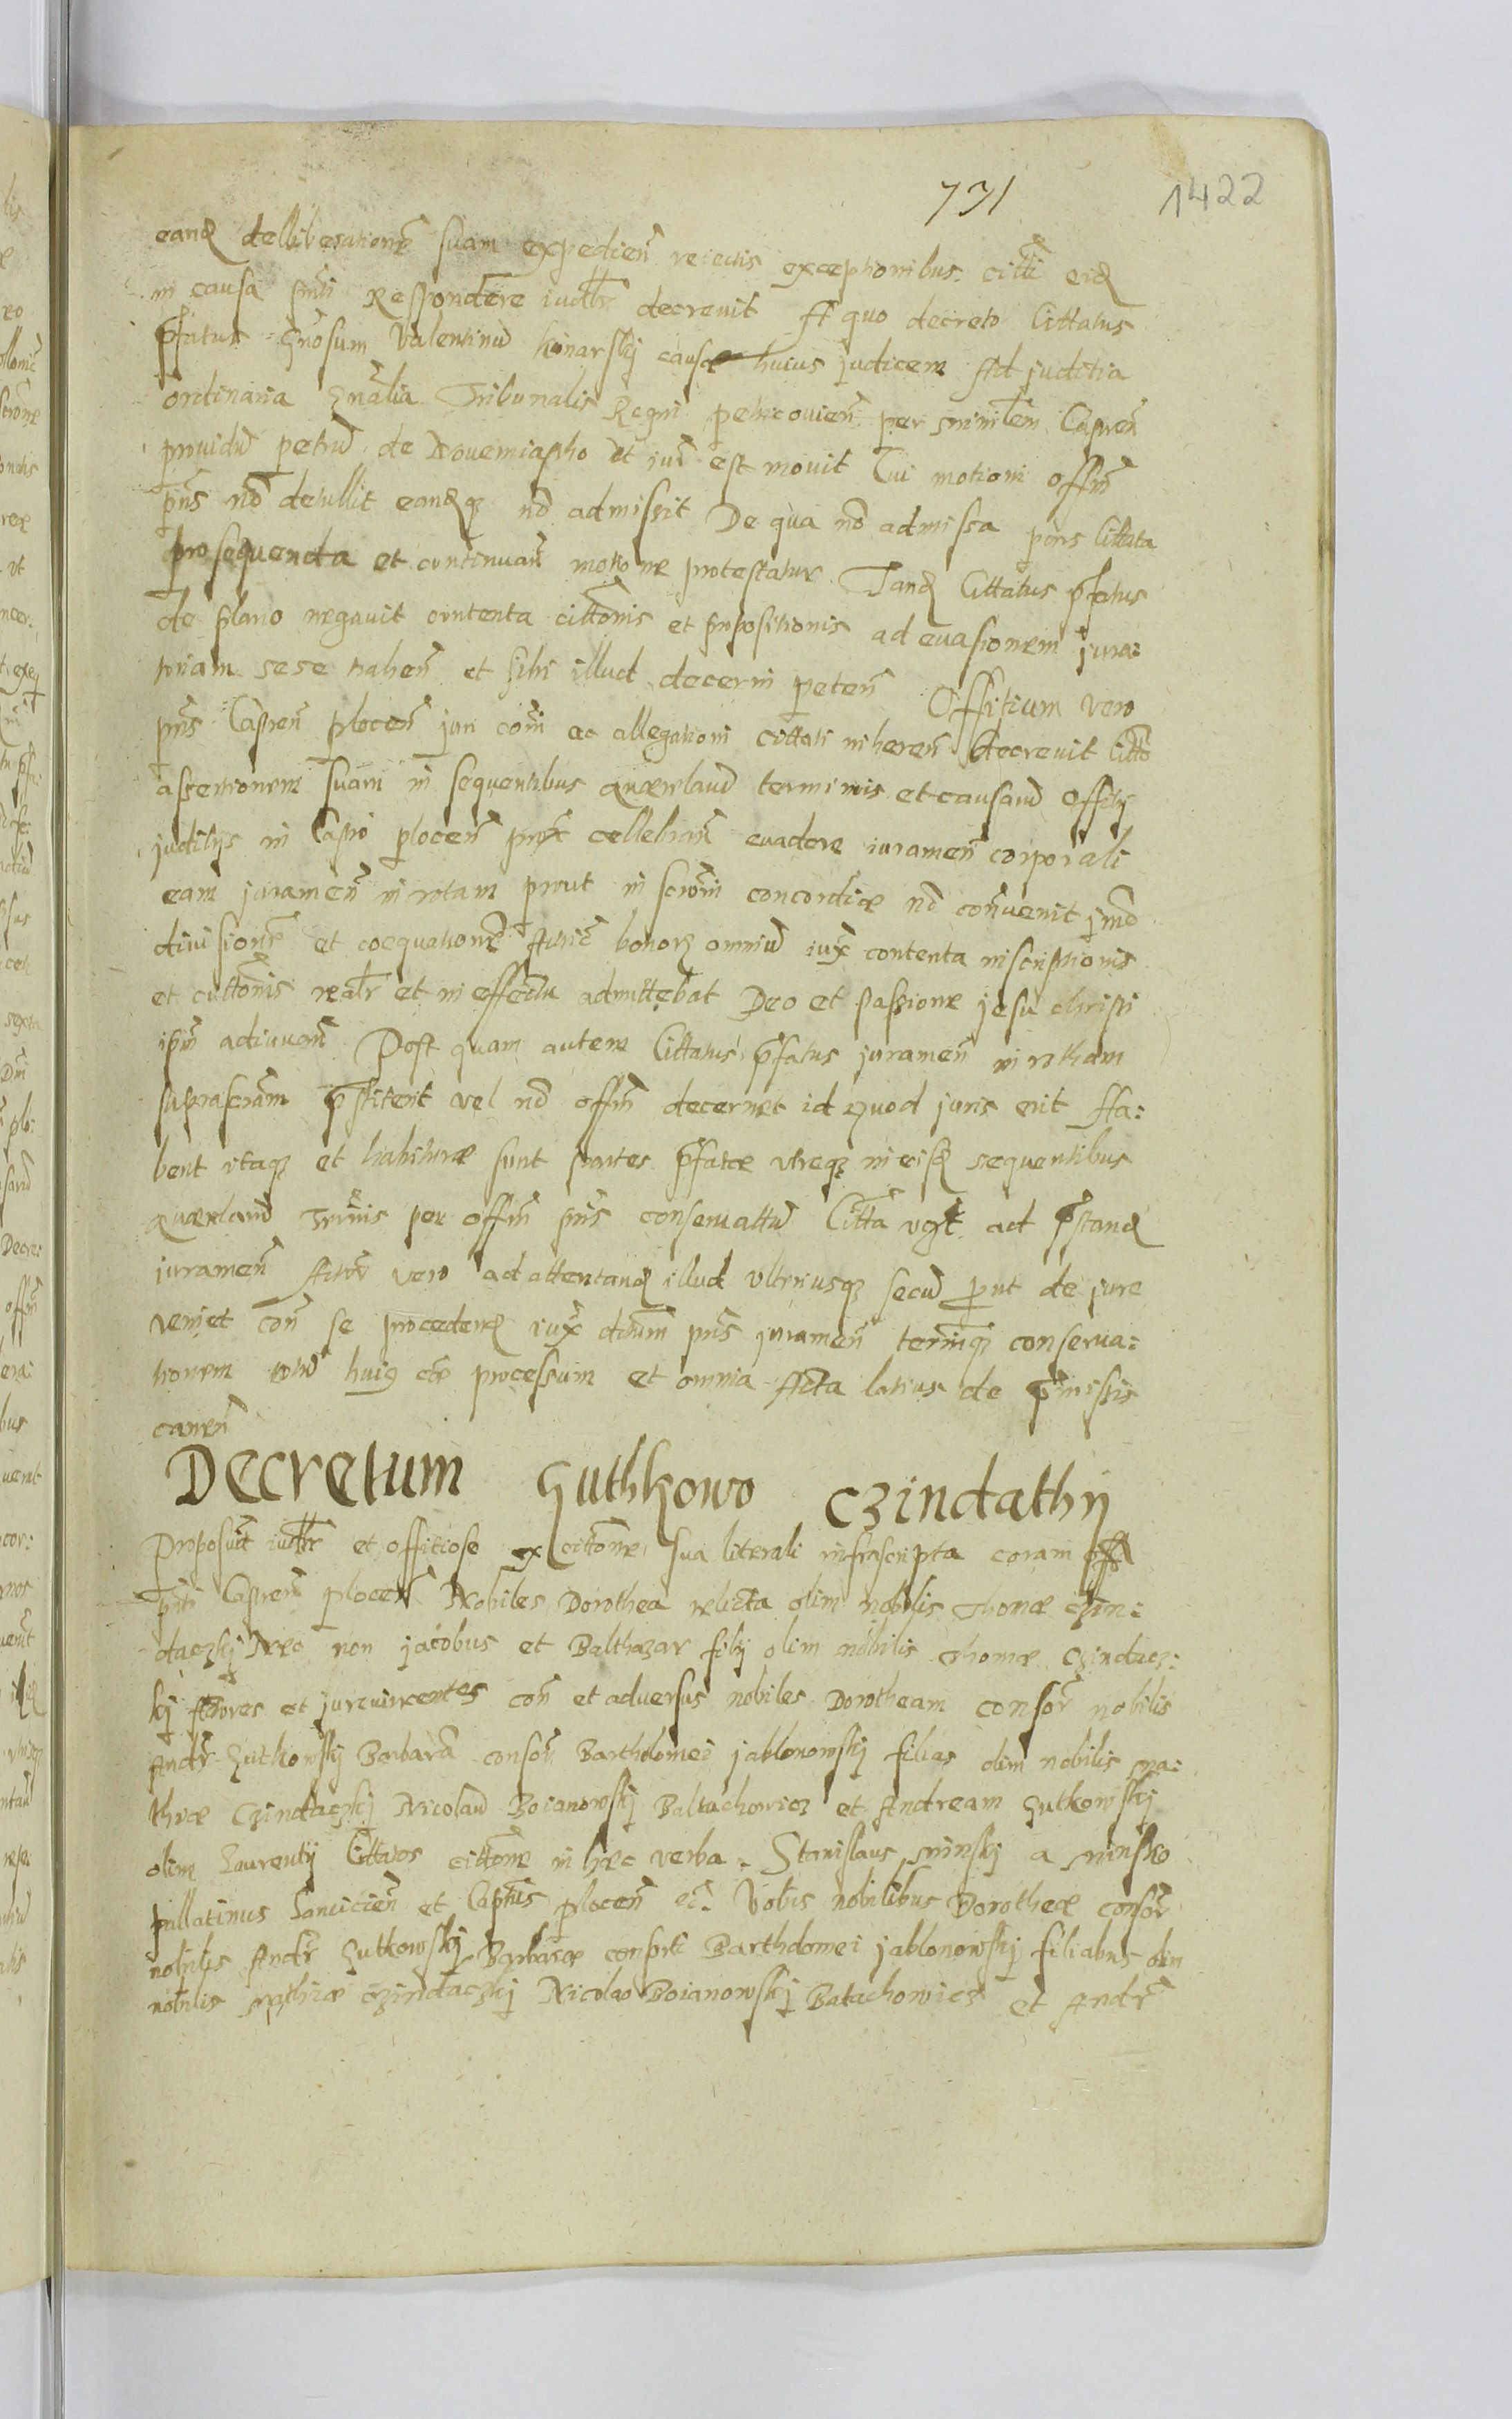 731 1422
eand delliberatione suam expedien reiectis exceptionibus citti eid
in causa pnti Respondere iudlr decrevit A quo decreto Cittatus
pfatus Gnosum Valentinu konarskj causæ huius judicem Ad juditia
ordinaria Gnalia Tribunalis Regni petricovien per minlem Capren
providu petru de Nouemiastho ut jur est movit Cui motioni offm
pns no detullit eandq no admissit De qua no admissa pars Cittata
prosequenda et continuan motione protestatur Tand Cittatus pfatus
de plano negavit contenta cittonis et propositionis ad evasionem jura:
toriam sese trahen et sibi illud decerni peten Offitium vero
pns Capren plocen juri comi ac allegationi cittati inheren decrevit Citto
assertionem suam in sequentibus quærelaru terminis et causaru offity
juditys in Castro plocen prox cellebran evadere iuramen corporali
eam juramen in rotam prout in scrom concordiæ no convenit jmo
divisione et coequatione Actric bonorz omniu iux contenta inscriptionis
et cittonis realr et in effectu admittebat Deo et passione jesu christi
ipm adiuvan Post quam autem Cittatus pfatus juramen in rotham
suprascram pstiterit vel no offm decernet id quod juris erit Ha:
bent itaqz et habituræ sunt partes pfatæ utreqz in eisd sequentibus
quærelaru Trminis per offm pns conservattu Citta vgt ad pstand
iuramen Actor vero ad attentand illud Ulteriusqz secu put de jure
veniet con se procedend iux dtum pns juramen terminqz conserva:
tionem totu huig ctr processum et omnia Acta latius de pmissis
caneñ
Decretum Guthkowo Czindathy
Proposuit iudlr et offitiose ex cittone sua literali infrascripta coram offo
pnti Capren plocen Nobiles Dorothea relicta olim nobilis Thomæ Czin:
daczkj Nec non jacobus et Balthazar fily olim nobilis Thomæ Czindacz:
kj Actores et jurevincentes con et adversus nobiles Dorotheam consor nobilis
Andr Gutkowskj Barbara consor Bartholomei jablonowskj filias olim nobilis Ma:
thiæ Czindaczkj Nicolaum Boianowskj Baltachowicz et Andream Gutkowskj
olim Laurenty Cittatos cittone in hæc verba. Stanislaus Minskj a Minsko
pallatinus Lancicien et Capnus plocen etc. Vobis nobilibus Dorotheæ consor
nobilis Andr Gutkowskj Barbaræ consorti Bartholomei jablonowskj filiabus olim
nobilis Mathiæ Czindaczkj Nicolao Boianowskj Batachowicz et Andr